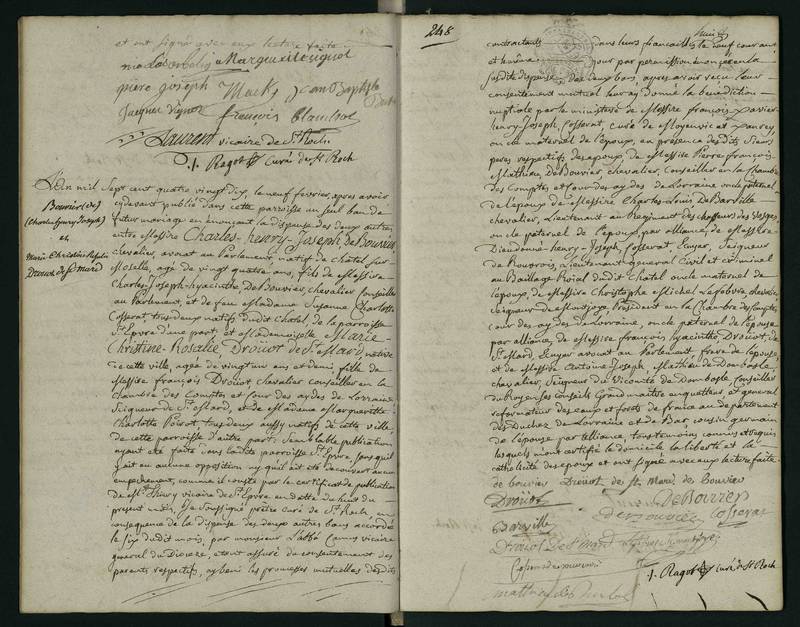 et ont signé avec eux lecture faite
Marguerite vignol
pierre joseph Macks jean Baptiste
jacques vignol françois
Laurent vicaire de St. Roch
J. Ragot Curé de St Roch
L'an mil sept cent quatre vingt dix, le neuf fevrier, apres avoir
Bouvier (de)
(Charles henry Joseph)
et
Marie Christine Rosalie
Drouot de St. Mard
cydevant publié dans cette parroisse un seul ban de
futur mariage en énonçant la dispense des deux autres
entre Messire Charles-henry-Joseph De Bouvier
chevalier, avocat au Parlement, natif de chatel sur
Moselle, agé de vingt quatre ans, fils de Messire
Charles-Joseph-hyacinthe De Bouvier, chevalier Conseiller
au Parlement, et de feu Madame Suzanne Charlotte
Cosserat tous deux natifs dudit Chatel, de la parroisse
St. Epvre d'une part, et Mademoiselle Marie-
Christine-Rosalie, Droüot de St. Mard, native
de cette ville, agée de vingt un ans et demi, fille de
Messire françois Droüot, chevalier conseiller en la
chambre des Comptes et Cour des aydes de Lorraine
Seigneur de St. Mard, et de Madame Marguerithe
Charlotte Poirot, tous deux aussy natifs de cette ville
de cette parroisse d'autre part: semblable publication
ayant été faite dans ladite parroisse St. Epvre, sans qu'il
y ait eu aucune opposition ny qu'il ait été decouvert aucun
empechement, comme il conste par le certificat de publication
de Mr. vicaire de St. Epvre en datte du huit du
present mois. Je soussigné prêtre curé de St. Roch, en
consequence de la dispense des deux autres bans accordée
le six dudit mois, par monsieur L'abbé Camus vicaire
general du Diocese, etant assuré du consentement des
parents respectifs, ay beni les promesses mutuelles desdits
248
huit
contractants dans leurs fiançailles le neuf courant
et le même jour par permission énoncée en la
susdite dispense des deux bans, apres avoir reçu leur
consentement mutuel leur ay donné la benediction
nuptiale par le ministere de Messire françois-xavier-
henry-Joseph, Cosserat, curé de Moyenvic et Xanrey
oncle maternel de l'époux, en presence desdits sieurs
peres respectifs des epoux, de Messire Pierre françois
Mathieu, De Bouvier, chevalier, Conseiller en la Chambre
des Comptes et Cour des aydes de Lorraine oncle paternel
de l'époux, de Messire Charles-Louis de Barville
chevalier, Lieutenant au Regiment des chasseurs des Vosges,
oncle paternel de l'époux par alliance, de Messire
Dieudonné-henry-Joseph, Cosserat Ecuyer, Seigneur
de Rouvrois, Lieutenant general Civil et criminel
au Bailliage Roial dudit Chatel oncle maternel de
l'époux, de Messire Christophe Michel Lefebvre, chevalier
Seigneur de Montjoye, President en la Chambre des Comptes,
cour des aydes de Lorraine, oncle paternel de l'épouse
par alliance, de Messire françois hyacinthe Droüot, de
St. Mard, Ecuyer avocat au Parlement frere de l'épouse,
et de Messire Antoine Joseph, Mathieu de Dombasle,
chevalier, Seigneur du Vicomté de Dombasle, Conseiller
du Roy en ses conseils Grand maitre enquetteur, et général
reformateur des eaux et forets de france au departement
des Duchez de Lorraine et de Bar, cousin germain
de l'épouse par alliance, tous temoins connus et requis
lesquels m'ont certifié le domicile la liberté et la
catholicité des epoux et ont signé avec eux lecture faite.
de bouvier Droüot de St. Mard de Bouvier
Droüot De Bouvier
Barville De Bouvier Cosserat
Droüot De St. Mard
mathieu de Dombasle J. Ragot curé de St Roch